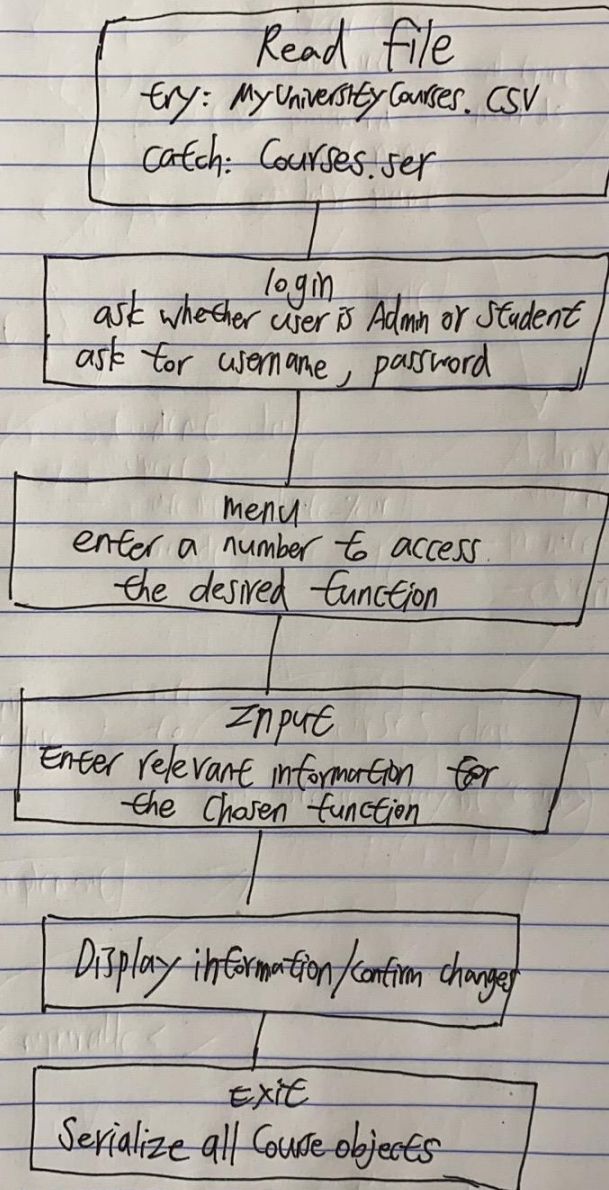 Read file
try: MyUniversityCourses.csv
Catch: Courses.ser
login
ask whether user is Admin or Student
ask for username, password
menu
enter a number to access
the desired function
Input
Enter relevant information for
the chosen function
Display information/confirm changes
Exit
Serialize all Course objects